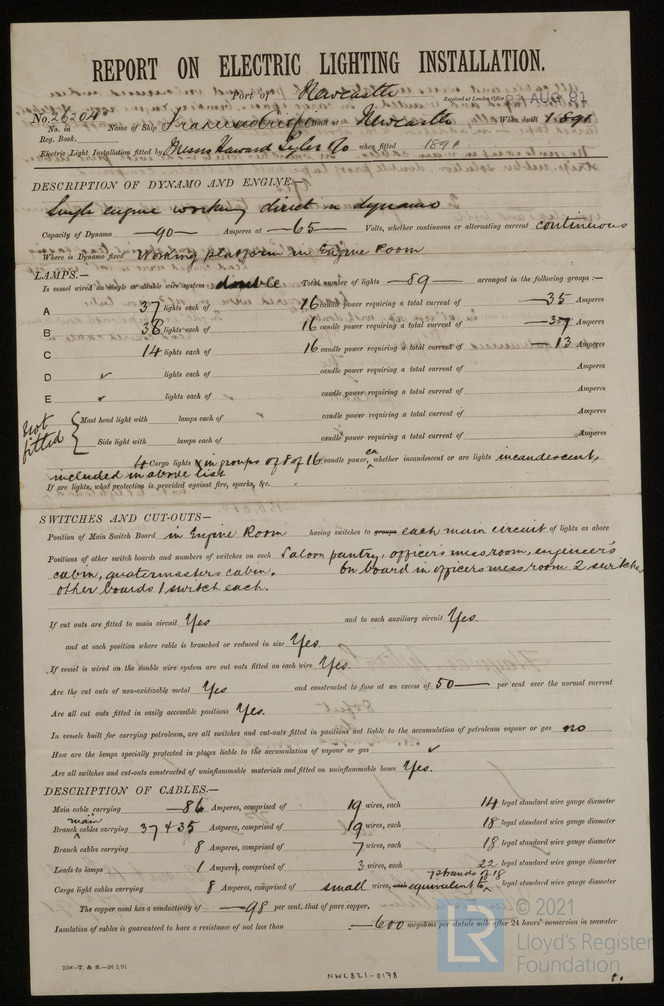 REPORT ON ELECTRIC LIGHTING INSTALLATION.
Port of Newcastle Received at London Office AUG 91
No. 26204
No. in Reg. Book. Name of Ship Francesco Crispi Built at Newcastle When built 1891
Electric Light Installation fitted by Messrs Haward Tyler & Co when fitted 1891
DESCRIPTION OF DYNAMO AND ENGINE—
Single engine working direct on dynamo
Capacity of Dynamo — 90 — Amperes at — 65 — Volts, whether continuous or alternating current continuous
Where is Dynamo fixed Working platform in Engine Room
LAMPS.—
Is vessel wired on single or double wire system double Total number of lights — 89 — arranged in the following groups :—
A 37 lights each of 16 candle power requiring a total current of — 35 Amperes
B 38 lights each of 16 candle power requiring a total current of — 37 Amperes
C 14 lights each of 16 candle power requiring a total current of — 13 Amperes
D ✓ lights each of candle power requiring a total current of Amperes
E ✓ lights each of candle power requiring a total current of Amperes
not fitted { Mast head light with lamps each of candle power requiring a total current of Amperes
Side light with lamps each of candle power requiring a total current of Amperes
4 Cargo lights in groups of 8 of 16 candle power, ea whether incandescent or arc lights incandescent,
included in above list
If arc lights, what protection is provided against fire, sparks, &c.
SWITCHES AND CUT-OUTS—
Position of Main Switch Board in Engine Room having switches to groups each main circuit of lights as above
Positions of other switch boards and numbers of switches on each Saloon pantry, officers mess room, engineer's
cabin, quatermasters cabin. On board in officers mess room 2 switches
other boards 1 switch each.
If cut outs are fitted to main circuit Yes and to each auxiliary circuit Yes.
and at each position where cable is branched or reduced in size Yes.
If vessel is wired on the double wire system are cut outs fitted on each wire Yes.
Are the cut outs of non-oxidizable metal Yes and constructed to fuse at an excess of 50 — per cent over the normal current
Are all cut outs fitted in easily accessible positions Yes.
In vessels built for carrying petroleum, are all switches and cut-outs fitted in positions not liable to the accumulation of petroleum vapour or gas no
How are the lamps specially protected in places liable to the accumulation of vapour or gas ✓
Are all switches and cut-outs constructed of uninflammable materials and fitted on uninflammable bases Yes.
DESCRIPTION OF CABLES.—
Main cable carrying — 86 Amperes, comprised of 19 wires, each 14 legal standard wire gauge diameter
main Branch cables carrying 37 & 35 Amperes, comprised of 19 wires, each 18 legal standard wire gauge diameter
Branch cables carrying 8 Amperes, comprised of 7 wires, each 18 legal standard wire gauge diameter
Leads to lamps 1 Ampere, comprised of 3 wires, each 22 legal standard wire gauge diameter
Cargo light cables carrying 8 Amperes, comprised of small wires, each equivalent to 7 strands of 18 legal standard wire gauge diameter
The copper used has a conductivity of — 98 per cent. that of pure copper.
Insulation of cables is guaranteed to have a resistance of not less than — 600 megohms per statute mile after 24 hours' immersion in seawater
200—T. & S.—26 2/91
NWL821-0178
© 2021
LR
Lloyd's Register
Foundation